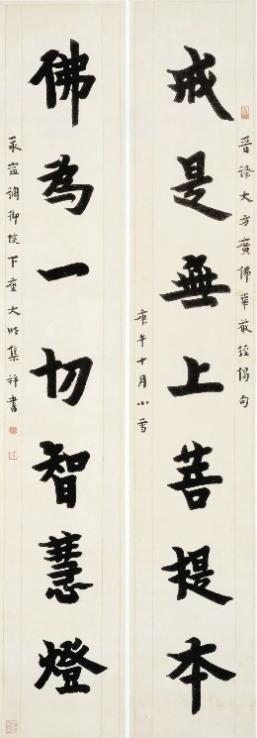 晉譯大方廣佛華嚴經偈句
戒是無上菩提本
庚午十月小雪
佛為一切智慧燈
永調御院下座大明集并書